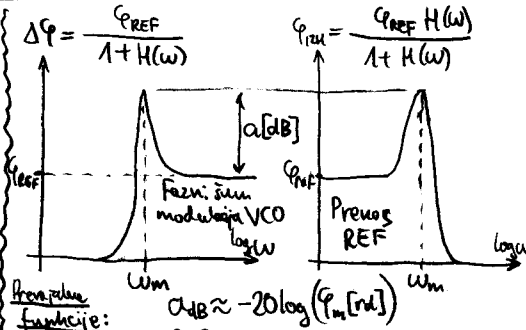 Δφ = φREF / (1 + H(ω))
φIZH = φREF H(ω) / (1 + H(ω))
a[dB]
φREF
Fazni šum
modulacija VCO
log ω
ωm
φREF
Prenos
REF
log ω
ωm
Prevajalne
funkcije:
adB ≈ -20log(φm[rd])